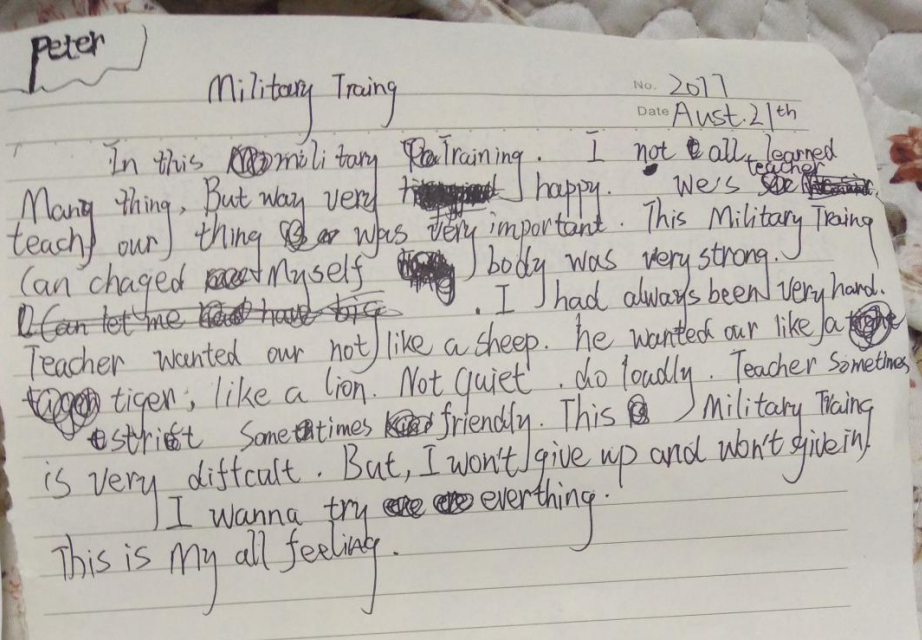 Peter
Military Traing
No. 2017
Date Aust. 21th
In this military Training. I not all, learned
Many thing, But way very happy. We's teacher
teach our thing was very important. This Military Traing
Can chaged Myself body was very strong.
Can let me have big . I had always been very hard.
Teacher wanted our not like a sheep. he wanted our like a
tiger, like a lion. Not Quiet. do loudly. Teacher Sometimes
strict Sometimes friendly. This Military Traing
is very diffcult. But, I won't give up and won't give in,
I wanna try everthing.
This is My all feeling.